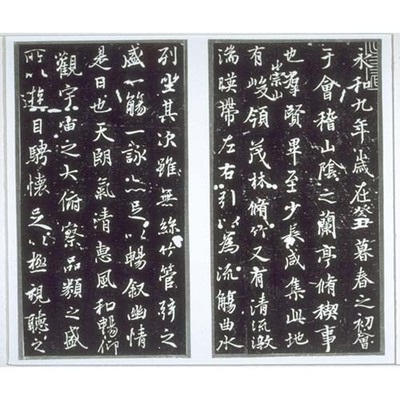 永和九年歲在癸丑暮春之初會
于會稽山陰之蘭亭脩禊事
也羣賢畢至少長咸集此地
有崇山峻領茂林脩竹又有清流激
湍暎帶左右引以為流觴曲水
列坐其次雖無絲竹管弦之
盛一觴一詠亦足以暢敘幽情
是日也天朗氣清惠風和暢仰
觀宇宙之大俯察品類之盛
所以遊目騁懷足以極視聽之